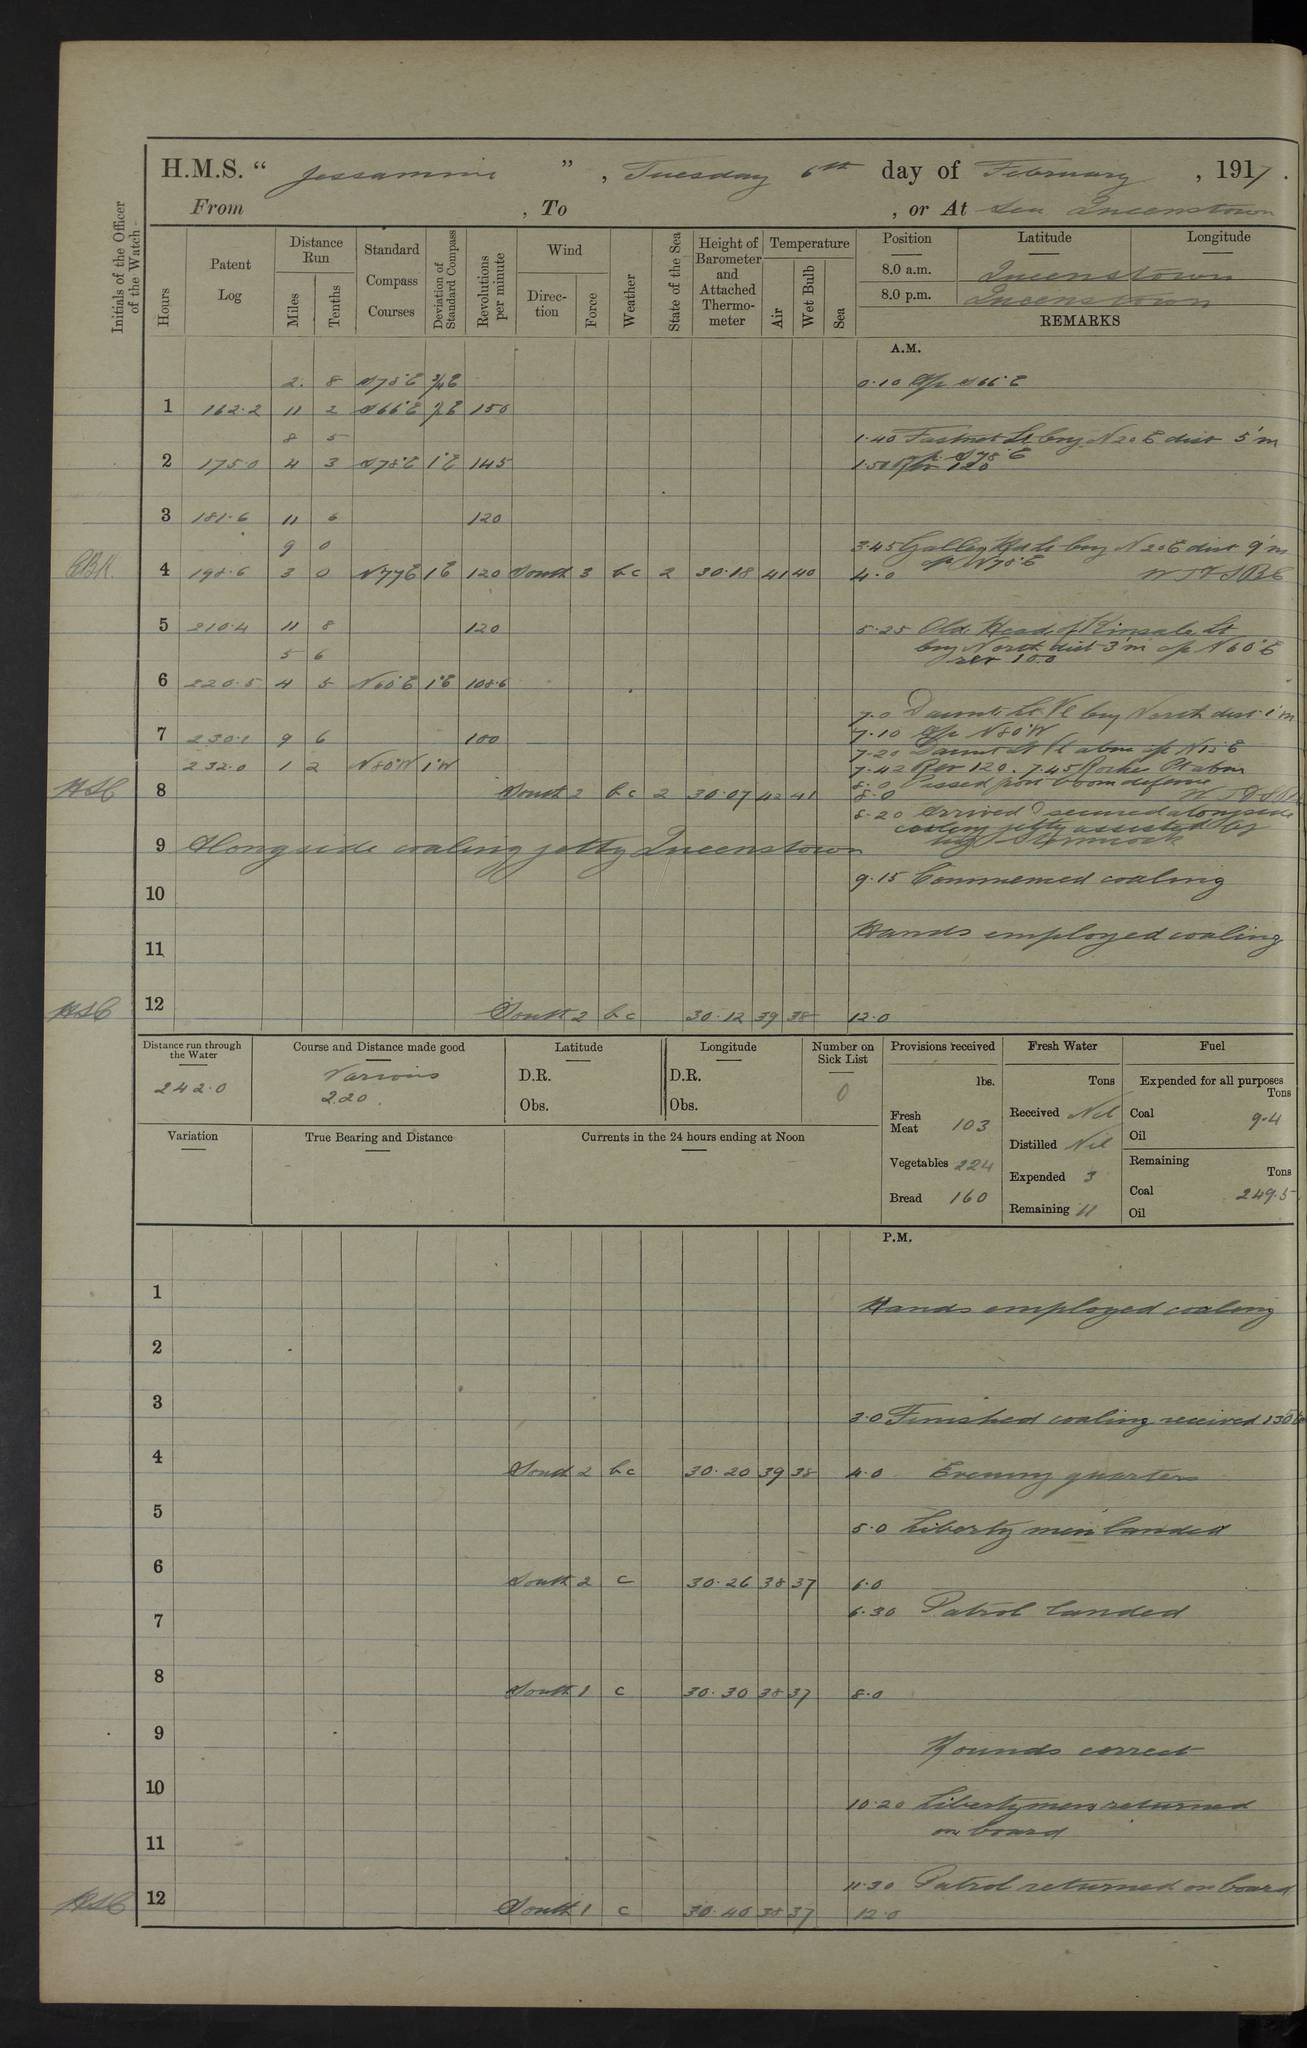 H.M.S. "Jessamine", Tuesday 6th day of February, 1917.
From , To , or At Sea Queenstown
Initials of the Officer of the Watch
Hours
Patent Log
Distance Run
Miles
Tenths
Standard Compass Courses
Deviation of Standard Compass
Revolutions per minute
Wind
Direction
Force
Weather
State of the Sea
Height of Barometer and Attached Thermometer
Temperature
Air
Wet Bulb
Sea
Position Latitude Longitude
8.0 a.m. Queenstown
8.0 p.m. Queenstown
REMARKS
A.M.
2. 8 S78°E ¾E 0.10 A/c S66°E
1 162.2 11 2 S66°E 150
8 5 1.40 Fastnet Lt brg N20E dist 5'm
a/c S78°E
2 175.0 4 3 S78°E 1°E 145 1.50 Rev 120
3 181.6 11 6 120
9 0 3.45 Galley Hd Lt brg N20E dist 9'm
a/c N78°E
4 198.6 3 0 N77E 1E 120 South 3 bc 2 30.18 41 40 4.0
5 210.4 11 8 120 5.25 Old Head of Kinsale Lt
5 6 brg North dist 3'm a/c N60°E
rev 100
6 220.5 4 5 N60°E 1°E 108.6
7.0 Daunts Lt Vl brg North dist 1'm
7 230.1 9 6 100 7.10 A/c N80°W
7.20 Daunt Lt Vl abm a/c N15°E
232.0 1 2 N80°W 1°W 7.42 Rev 120. 7.45 Roche Pt abm
8.0 Passed port boom defence
HSC 8 South 2 bc 2 30.07 42 41 8.0
8.20 Arrived & secured alongside
coaling jetty assisted by
tug
9 Alongside coaling jetty Queenstown
9.15 Commenced coaling
10
Hands employed coaling
11
HSC 12 South 2 bc 30.12 39 38 12.0
Distance run through the Water 242.0
Course and Distance made good Various 220.
Latitude D.R. Obs.
Longitude D.R. Obs.
Number on Sick List 0
Provisions received lbs.
Fresh Meat 103
Vegetables 224
Bread 160
Fresh Water Tons
Received Nil
Distilled Nil
Expended 3
Remaining 11
Fuel
Expended for all purposes Tons
Coal 9.4
Oil
Remaining Tons
Coal 249.5
Oil
Variation
True Bearing and Distance
Currents in the 24 hours ending at Noon
P.M.
1
Hands employed coaling
2
3
3.0 Finished coaling received 130
4 South 2 bc 30.20 39 38 4.0 Evening quarters
5
5.0 Liberty men landed
6 South 2 c 30.26 38 37 6.0
6.30 Patrol landed
7
8 South 1 c 30.30 38 37 8.0
9
Rounds correct
10
10.20 Libertymen returned
on board
11
11.30 Patrol returned on board
HSC 12 South 1 c 30.40 38 37 12.0